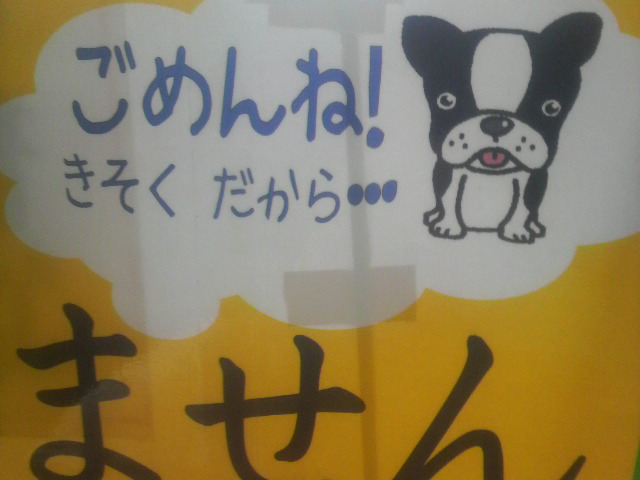 ごめんね!
きそく だから•••
ません